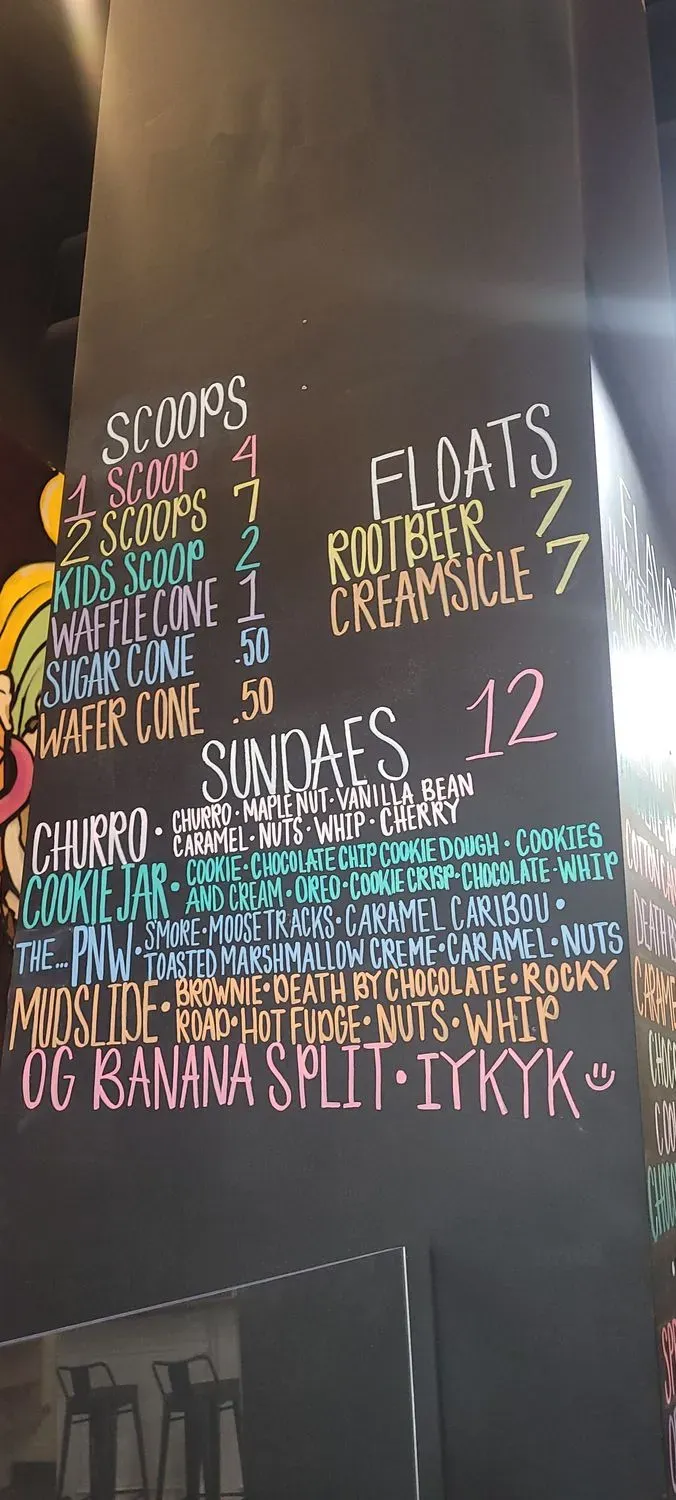 SCOOPS
1 SCOOP 4
2 SCOOPS 7
KIDS SCOOP 2
WAFFLE CONE 1
SUGAR CONE .50
WAFER CONE .50
FLOATS
ROOTBEER 7
CREAMSICLE 7
SUNDAES 12
CHURRO · CHURRO · MAPLE NUT · VANILLA BEAN
CARAMEL · NUTS · WHIP · CHERRY
COOKIE JAR · COOKIE · CHOCOLATE CHIP COOKIE DOUGH · COOKIES
AND CREAM · OREO · COOKIE CRISP · CHOCOLATE · WHIP
THE... PNW · SMORE · MOOSETRACKS · CARAMEL CARIBOU ·
TOASTED MARSHMALLOW CREME · CARAMEL · NUTS
MUDSLIDE · BROWNIE · DEATH BY CHOCOLATE · ROCKY
ROAD · HOT FUDGE · NUTS · WHIP
OG BANANA SPLIT · IYKYK